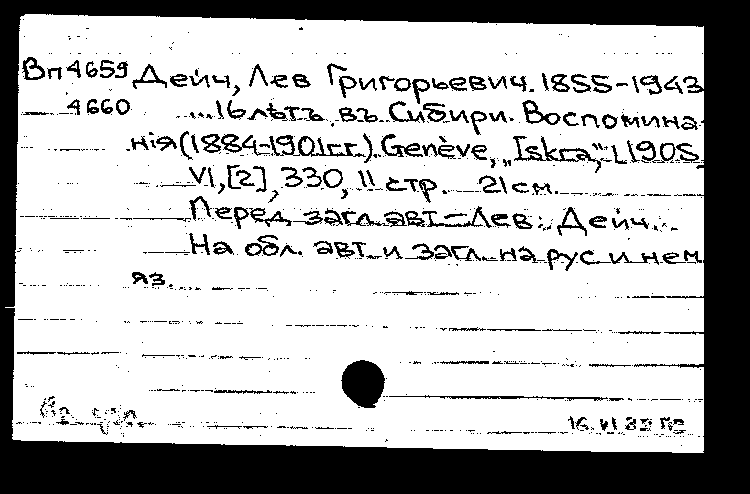 Вп4659 Дейч, Лев Григорьевич. 1855-1943
4660 ...16 лѣтъ въ Сибири. Воспомина-
нія (1884-1901гг.). Genève, „Iskra", [1905
VI, [2], 330, II стр. 21 см.
Перед загл. авт. - Лев. Дейч.
На обл. авт. и загл. на рус. и нем.
яз.
16. VI